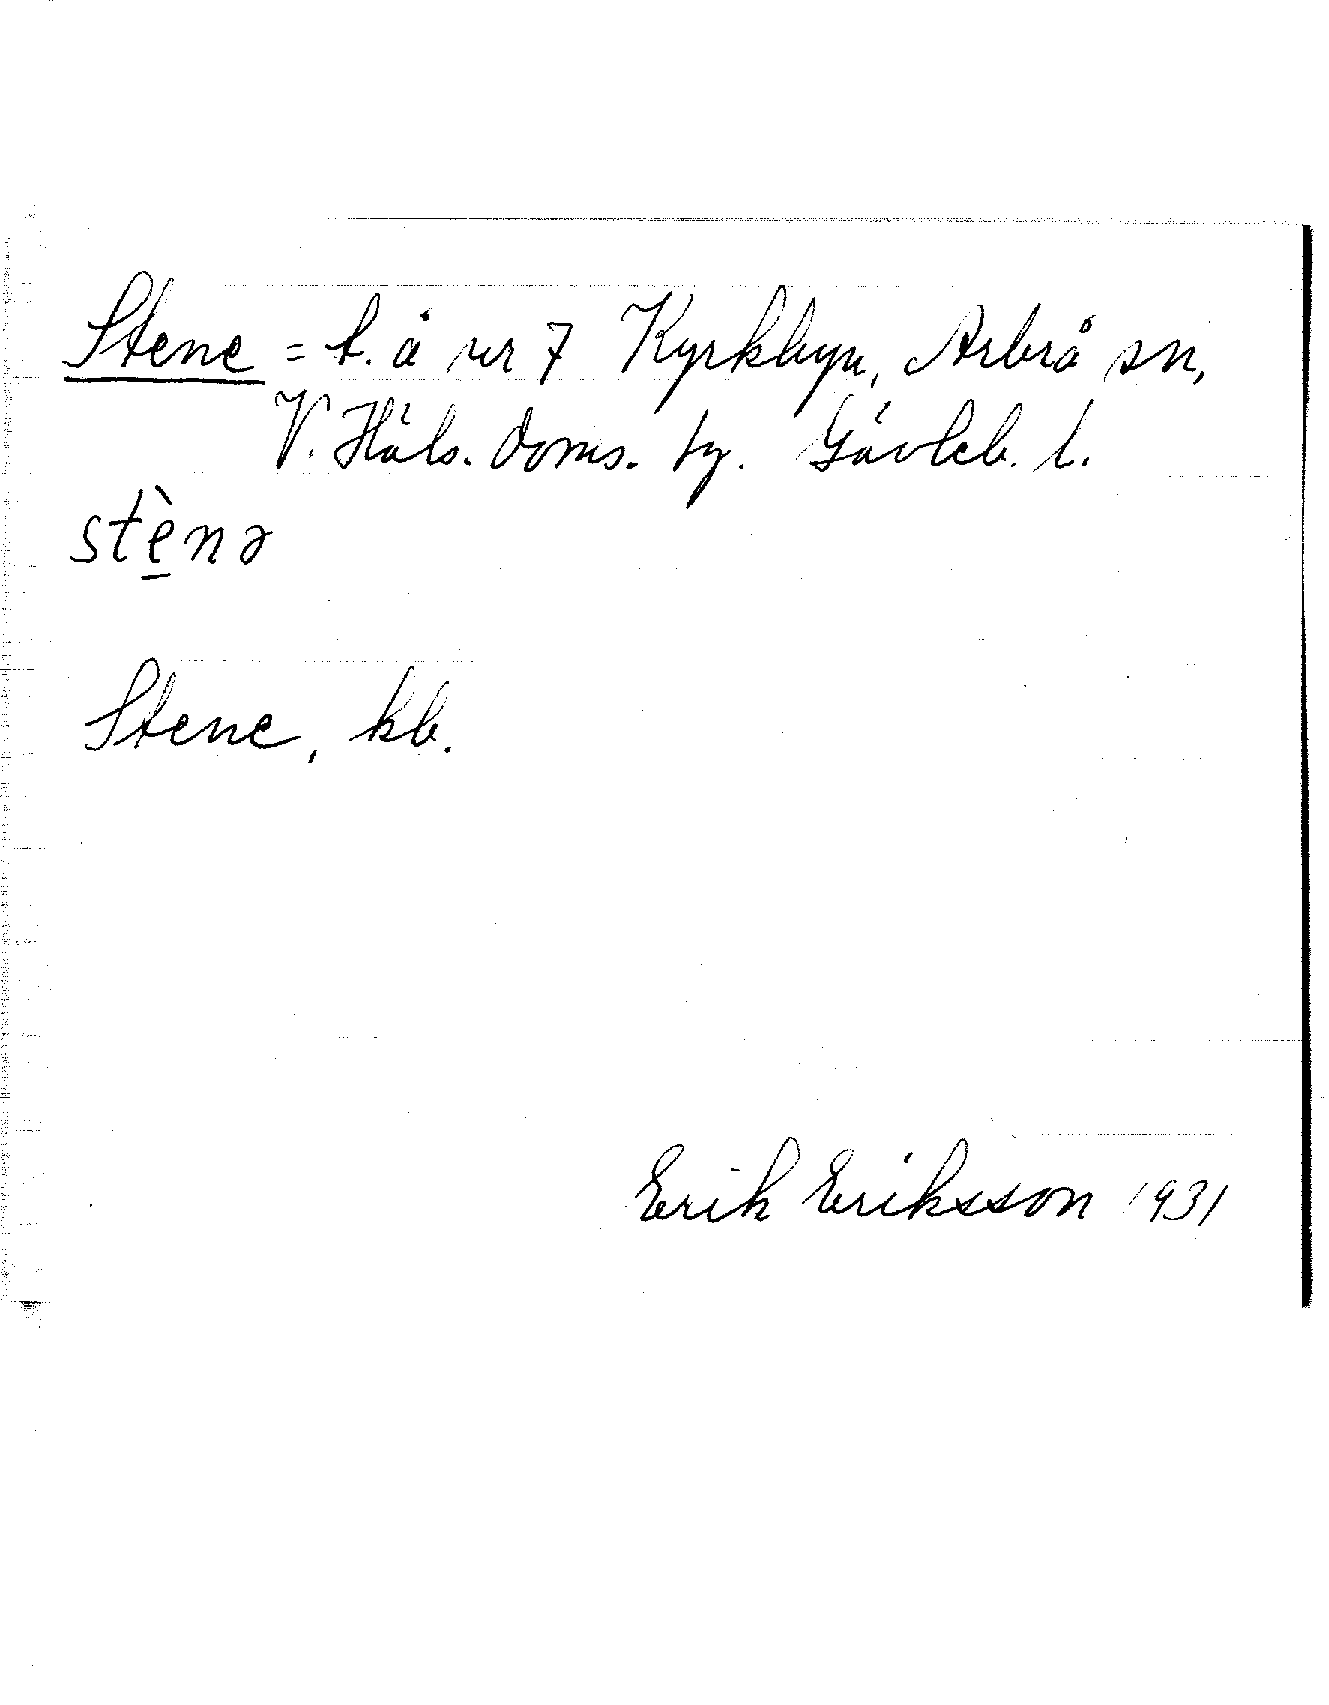 Stene = t. å nr 7 Kyrkbyn, Arbrå sn,
V. Häls. doms. tg. Gävleb. l.
stènə
Stene, kb.
Erik Eriksson 1931